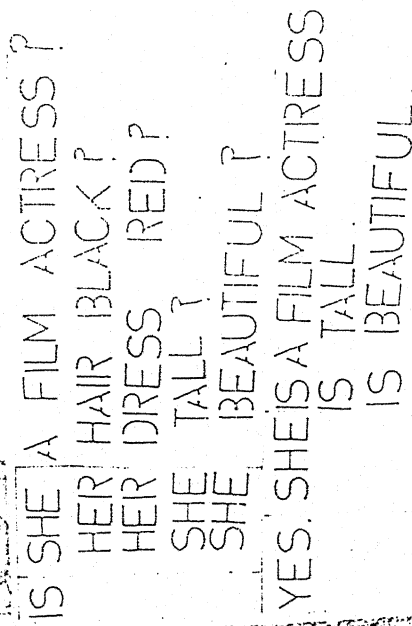 IS SHE A FILM ACTRESS?
HER HAIR BLACK?
HER DRESS REID?
SHE TALL?
SHE BEAUTIFUL?
YES. SHE IS A FILM ACTRESS
IS TALL.
IS BEAUTIFUL